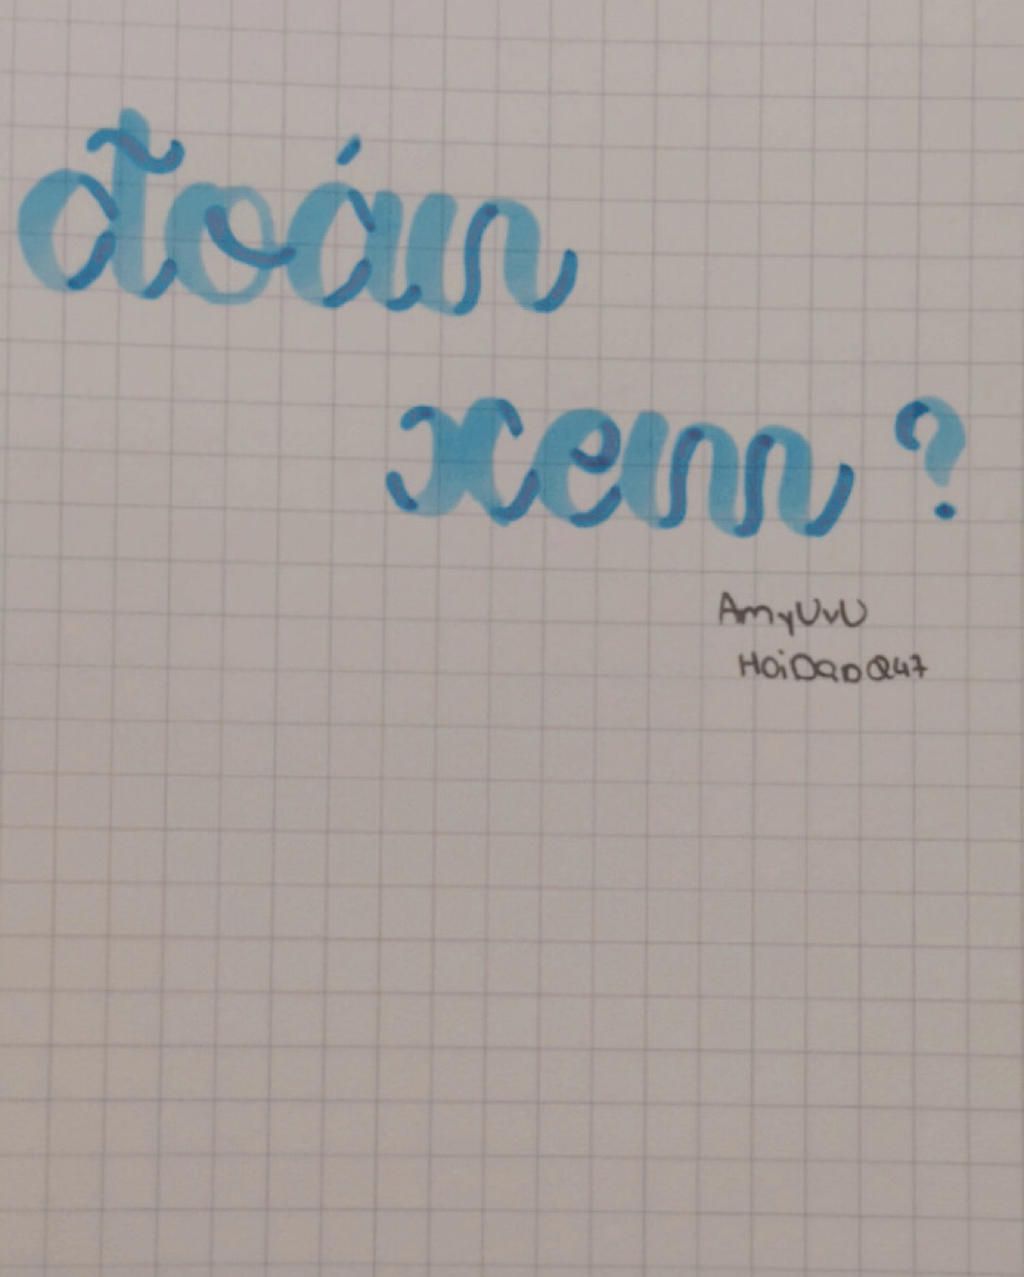 đoán
xem ?
AmyUvU
HoiDapQ247